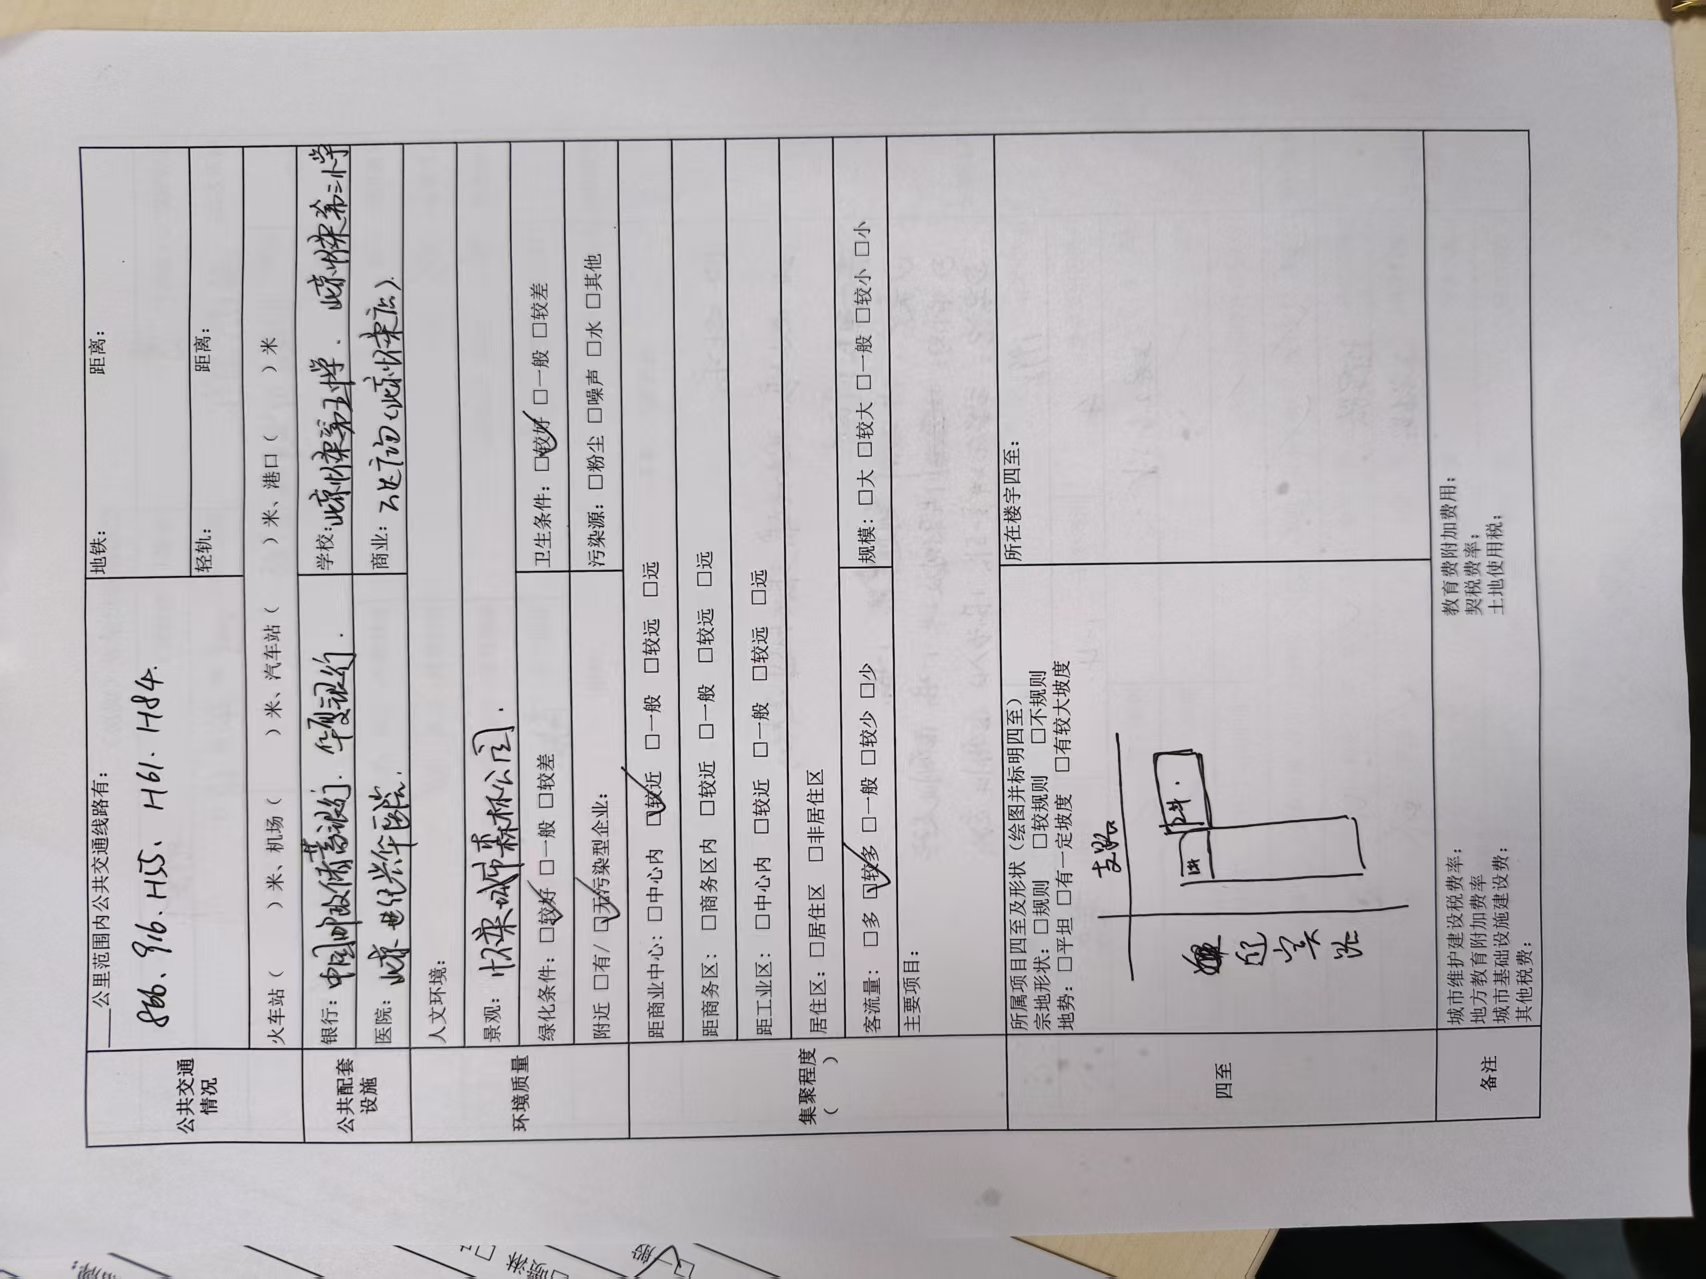 公共交通情况
___公里范围内公共交通线路有：
866、916、H55、H61、H84.
地铁： 距离：
轻轨： 距离：
火车站（ ）米、机场（ ）米、汽车站（ ）米、港口（ ）米
公共配套设施
银行：中国邮政储蓄银行、华夏银行.
学校：北京怀柔第五中学、北京怀柔第三小学
医院：北京世纪兴华医院.
商业：（北京怀柔店）
环境质量
人文环境：
景观：怀柔城市森林公园.
绿化条件：□较好 □一般 □较差
卫生条件：□较好 □一般 □较差
附近 □有/ □无污染型企业：
污染源：□粉尘 □噪声 □水 □其他
集聚程度
（ ）
距商业中心：□中心内 □较近 □一般 □较远 □远
距商务区：□商务区内 □较近 □一般 □较远 □远
距工业区：□中心内 □较近 □一般 □较远 □远
居住区：□居住区 □非居住区
客流量：□多 □较多 □一般 □较少 □少
规模：□大 □较大 □一般 □较小 □小
主要项目：
四至
所属项目四至及形状（绘图并标明四至）
宗地形状：□规则 □较规则 □不规则
地势：□平坦 □有一定坡度 □有较大坡度
支路
路
所在楼宇四至：
备注
城市维护建设税费率： 教育费附加费用：
地方教育附加费率 契税费率：
城市基础设施建设费： 土地使用税：
其他税费：
喷淋
般